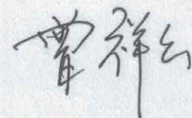 曹祥云